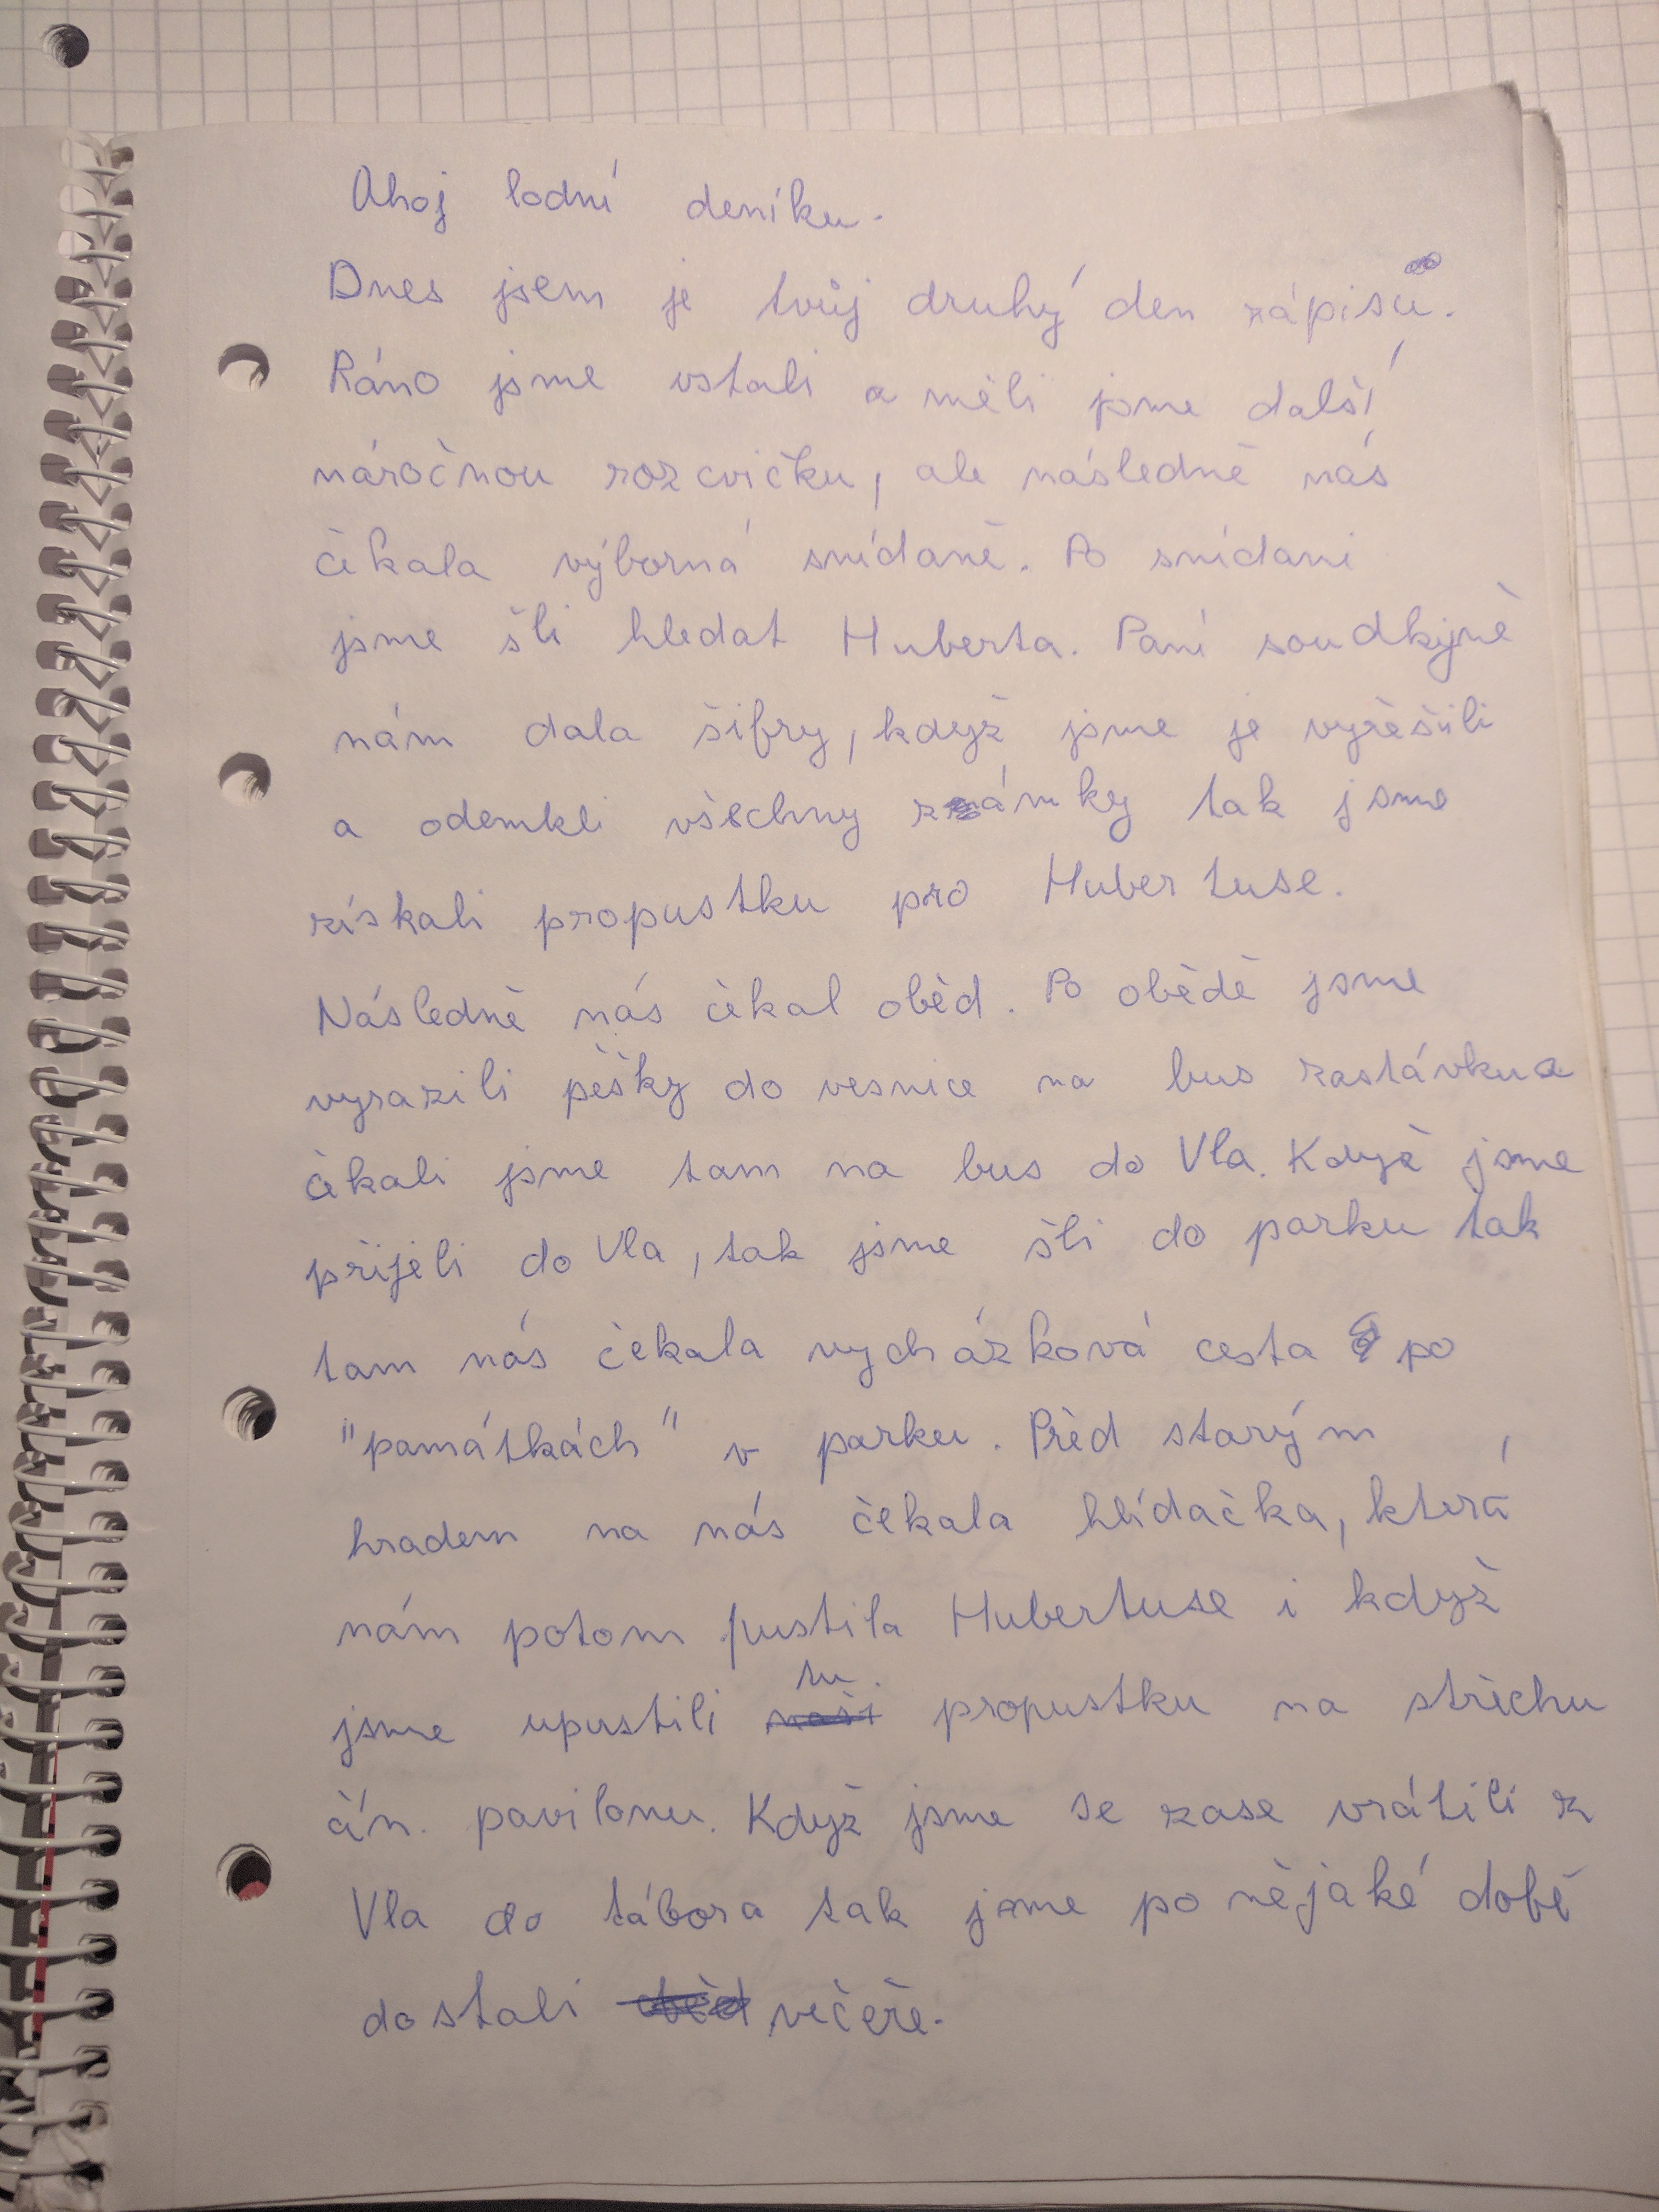 Ahoj lodní deníku.
Dnes jsem je tvůj druhý den zápisů.
Ráno jsme vstali a měli jsme další
náročnou rozcvičku, ale následně nás
čekala výborná snídaně. Po snídani
jsme šli hledat Huberta. Paní soudkyně
nám dala šifry, když jsme je vyřešili
a odemkli všechny zámky tak jsme
získali propustku pro Hubertuse.
Následně nás čekal oběd. Po obědě jsme
vyrazili pěšky do vesnice na bus zastávku a
čekali jsme tam na bus do Vla. Když jsme
přijeli do Vla, tak jsme šli do parku tak
tam nás čekala vycházková cesta po
"památkách" v parku. Před starým
hradem na nás čekala hlídačka, která
nám potom pustila Hubertuse i když
jsme upustili tu propustku na střechu
čín. pavilonu. Když jsme se zase vrátili z
Vla do tábora tak jsme po nějaké době
dostali večeře.